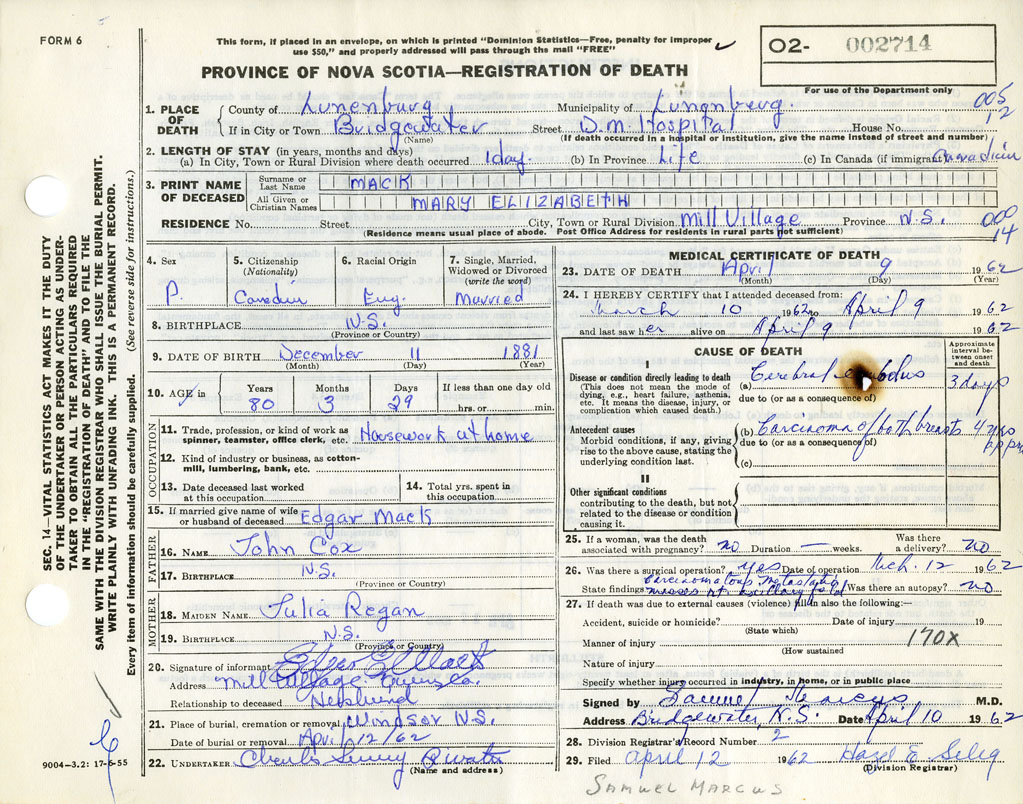 FORM 6
This form, if placed in an envelope, on which is printed "Dominion Statistics—Free, penalty for improper
use $50," and properly addressed will pass through the mail "FREE"
O2- 002714
For use of the Department only
PROVINCE OF NOVA SCOTIA—REGISTRATION OF DEATH
005
12
1. PLACE OF DEATH
County of Lunenburg Municipality of Lunenburg.
If in City or Town Bridgewater Street D.M. Hospital House No.
(Name) (If death occurred in a hospital or institution, give the name instead of street and number)
2. LENGTH OF STAY (in years, months and days)
(a) In City, Town or Rural Division where death occurred 1 day. (b) In Province Life (c) In Canada (if immigrant)
3. PRINT NAME OF DECEASED
Surname or Last Name MACK
All Given or Christian Names MARY ELIZABETH
RESIDENCE No. Street City, Town or Rural Division Mill Village Province N.S.
(Residence means usual place of abode. Post Office Address for residents in rural parts not sufficient)
000
14
4. Sex
5. Citizenship (Nationality)
6. Racial Origin Eng.
7. Single, Married, Widowed or Divorced (write the word) Married
8. BIRTHPLACE N.S.
(Province or Country)
9. DATE OF BIRTH December 11 1881
(Month) (Day) (Year)
10. AGE in Years Months Days If less than one day old
80 3 29 hrs. or min.
OCCUPATION
11. Trade, profession, or kind of work as spinner, teamster, office clerk, etc. Housework at home
12. Kind of industry or business, as cotton-mill, lumbering, bank, etc.
13. Date deceased last worked at this occupation
14. Total yrs. spent in this occupation
15. If married give name of wife or husband of deceased Edgar Mack
FATHER
16. NAME John Cox
17. BIRTHPLACE N.S.
(Province or Country)
MOTHER
18. MAIDEN NAME Julia Regan
19. BIRTHPLACE N.S.
(Province or Country)
20. Signature of informant Edgar Mack
Address Mill Village Queens Co.
Relationship to deceased Husband
21. Place of burial, cremation or removal Windsor N.S.
Date of burial or removal April 12/62
22. UNDERTAKER Charles
(Name and address)
MEDICAL CERTIFICATE OF DEATH
23. DATE OF DEATH April 9 1962
(Month) (Day) (Year)
24. I HEREBY CERTIFY that I attended deceased from:
March 10 1962 to April 9 1962
and last saw her alive on April 9 1962
CAUSE OF DEATH
Approximate interval between onset and death
I
Disease or condition directly leading to death
(This does not mean the mode of dying, e.g., heart failure, asthenia, etc. It means the disease, injury, or complication which caused death.)
(a) Cerebral 3 days
due to (or as a consequence of)
Antecedent causes
Morbid conditions, if any, giving rise to the above cause, stating the underlying condition last.
(b) Carcinoma of both breasts 4
due to (or as a consequence of)
(c)
II
Other significant conditions
contributing to the death, but not related to the disease or condition causing it.
25. If a woman, was the death associated with pregnancy? no Duration — weeks. Was there a delivery? no
26. Was there a surgical operation? yes Date of operation Mch. 12 1962
State findings Carcinomatous metastatic
masses Was there an autopsy? no
27. If death was due to external causes (violence) fill in also the following:—
Accident, suicide or homicide? Date of injury 19
(State which)
Manner of injury 170X
(How sustained)
Nature of injury
Specify whether injury occurred in industry, in home, or in public place
Signed by Samuel Marcus M.D.
Address Bridgewater, N.S. Date April 10 1962
28. Division Registrar's Record Number 2
29. Filed April 12 1962 Hazel E
(Division Registrar)
SAMUEL MARCUS
9004-3.2: 17-6-55
SEC. 14—VITAL STATISTICS ACT MAKES IT THE DUTY
OF THE UNDERTAKER OR PERSON ACTING AS UNDER-
TAKER TO OBTAIN ALL THE PARTICULARS REQUIRED
IN THE "REGISTRATION OF DEATH" AND TO FILE THE
SAME WITH THE DIVISION REGISTRAR WHO SHALL ISSUE THE BURIAL PERMIT.
WRITE PLAINLY WITH UNFADING INK. THIS IS A PERMANENT RECORD.
Every item of information should be carefully supplied. (See reverse side for instructions.)